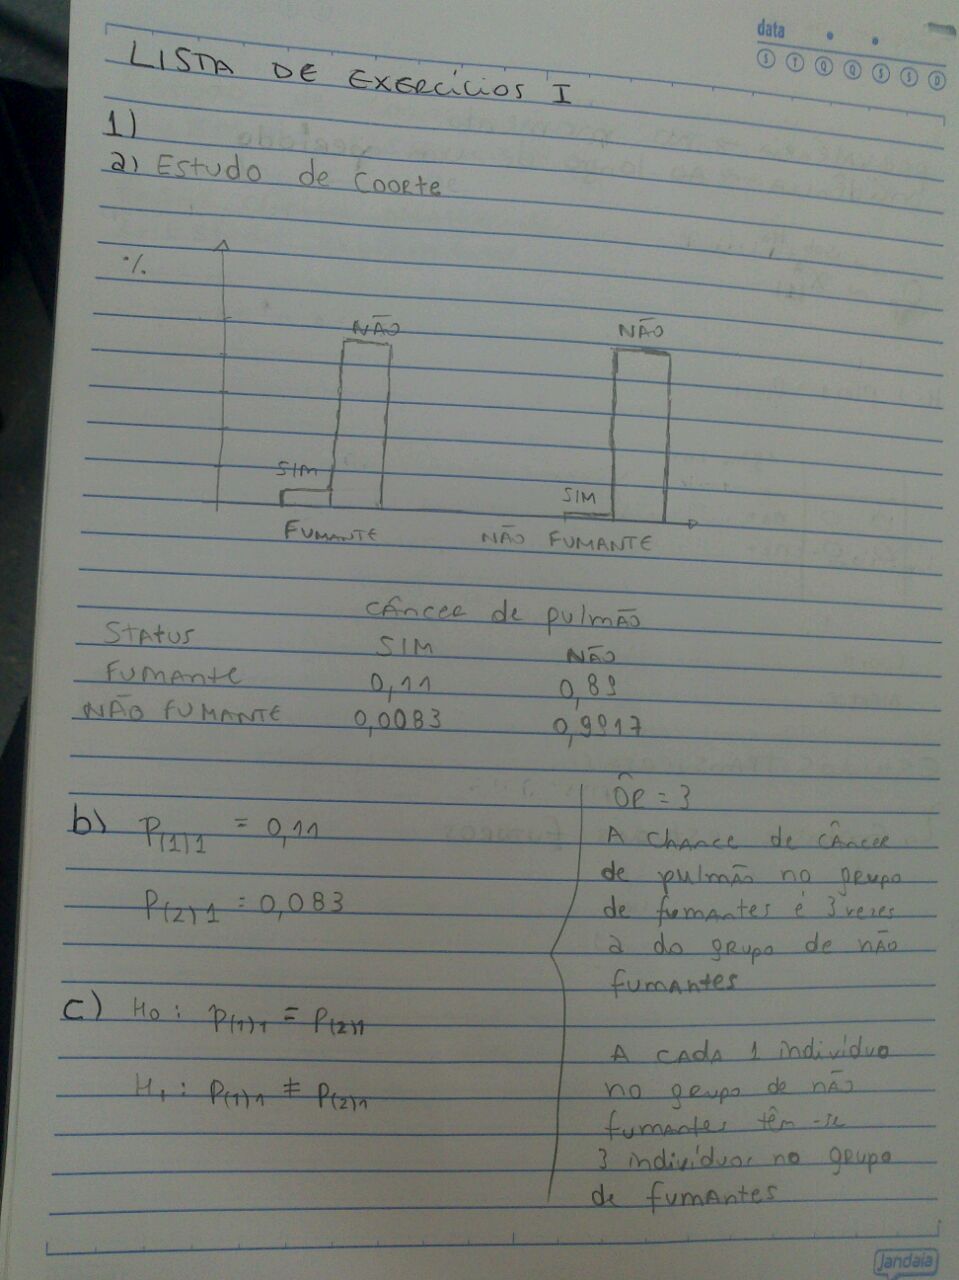 data
S T Q Q S S D
LISTA DE EXERCÍCIOS I
1)
a) Estudo de Coorte
%
NÃO
NÃO
SIM
SIM
FUMANTE
NÃO FUMANTE
CÂNCER de pulmão
Status
SIM
NÃO
Fumante
0,11
0,89
NÃO FUMANTE
0,0083
0,9917
b) P(1)1 = 0,11
P(2)1 = 0,083
c) H0: P(1)1 = P(2)1
H1: P(1)1 ≠ P(2)1
ÔR = 3
A chance de câncer
de pulmão no grupo
de fumantes é 3 vezes
a do grupo de não
fumantes
A cada 1 indivíduo
no grupo de não
fumantes têm-se
3 indivíduos no grupo
de fumantes
Jandaia